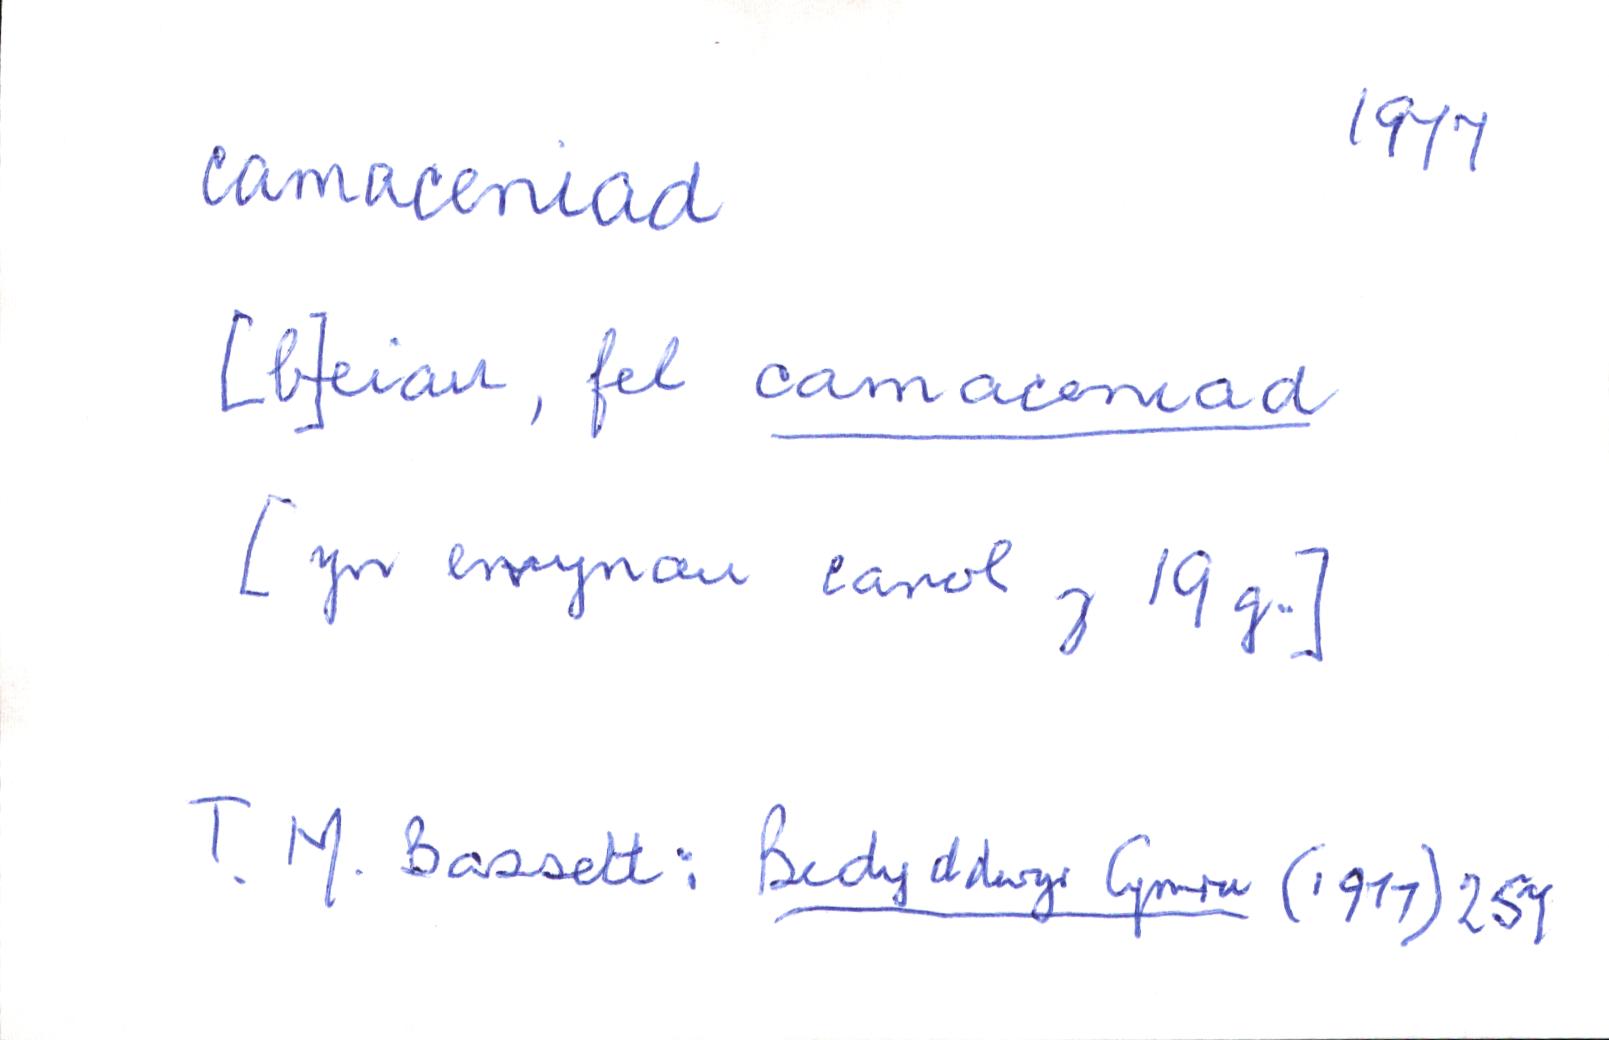 1977
camaceniad
[b]eiau, fel camaceniad
[yn emynau canol y 19 g.]
T. M. Bassett: Bedyddwyr Cymru (1977) 257